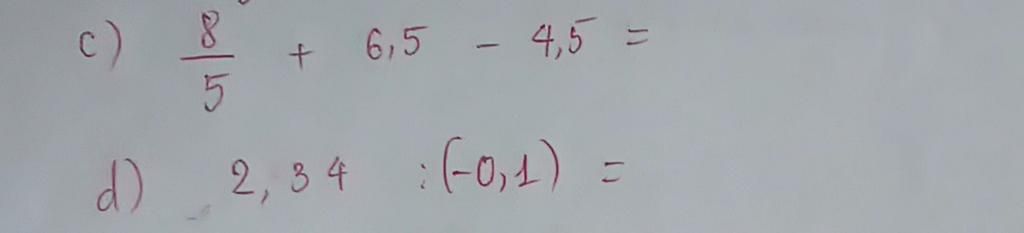 c) 8/5 + 6,5 - 4,5 =
d) 2,34 : (-0,1) =